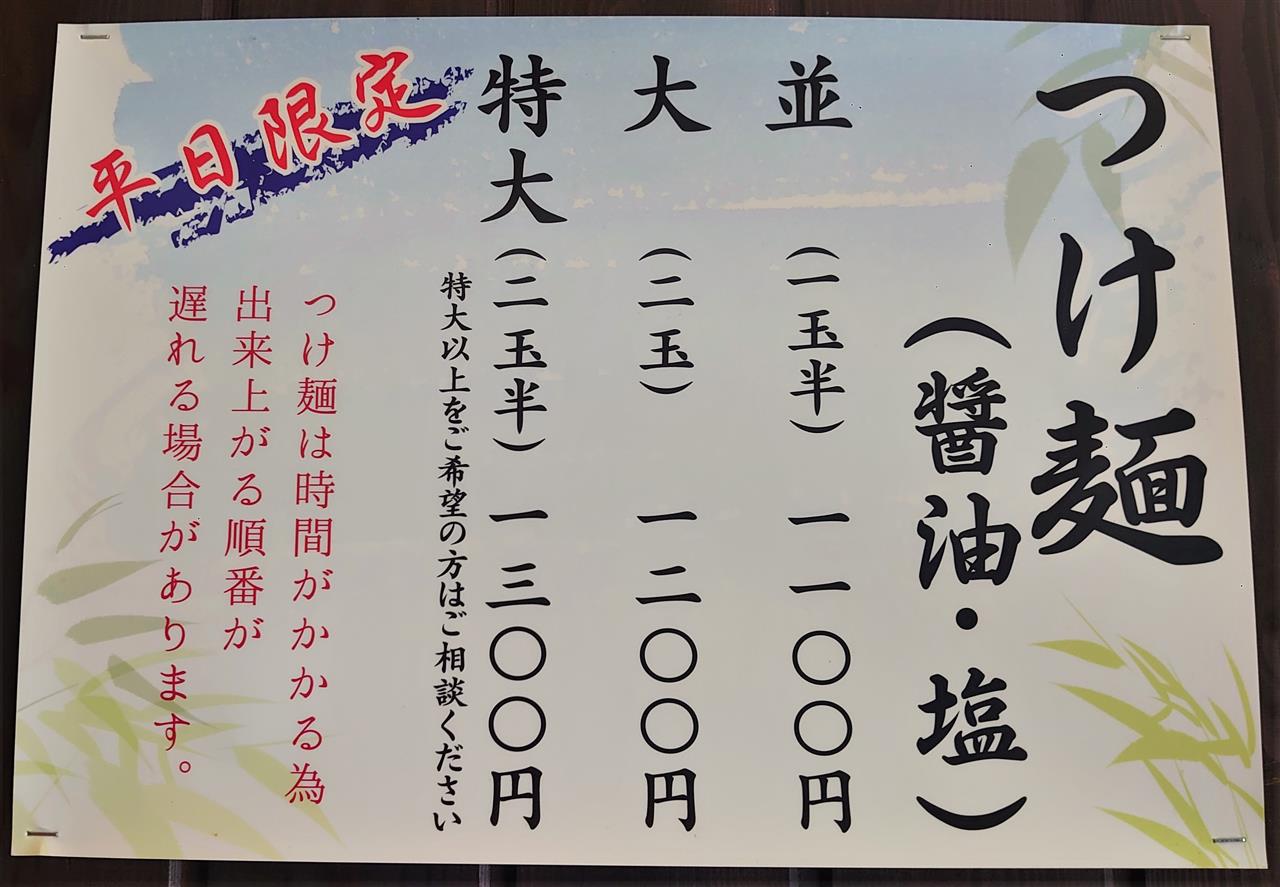 つけ麺
(醤油・塩)
並(一玉半)一一〇〇円
大(二玉)一二〇〇円
特大(二玉半)一三〇〇円
特大以上をご希望の方はご相談ください
平日限定
つけ麺は時間がかかる為
出来上がる順番が
遅れる場合があります。